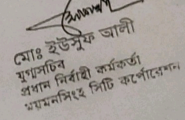 মোঃ ইউসুফ আলী
যুগ্মসচিব
প্রধান নির্বাহী কর্মকর্তা
ময়মনসিংহ সিটি কর্পোরেশন।